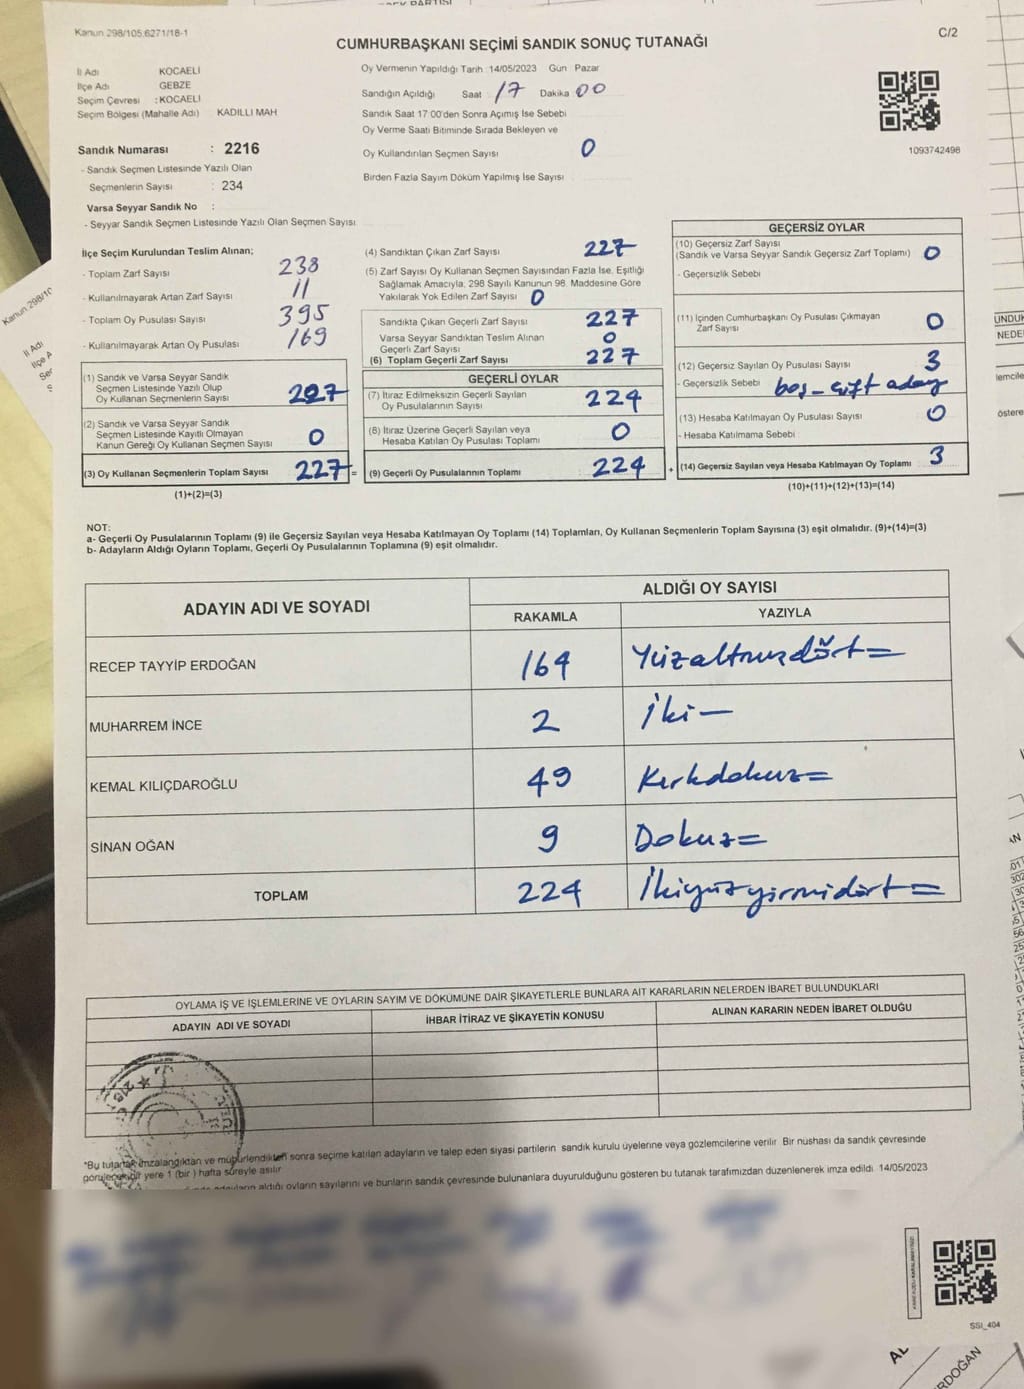 Kanun 298/105,6271/18-1
C/2
CUMHURBAŞKANI SEÇİMİ SANDIK SONUÇ TUTANAĞI
İl Adı KOCAELİ
İlçe Adı GEBZE
Seçim Çevresi : KOCAELİ
Seçim Bölgesi (Mahalle Adı) KADILLI MAH
Oy Vermenin Yapıldığı Tarih :14/05/2023 Gün : Pazar
Sandığın Açıldığı Saat 17 Dakika 00
Sandık Saat 17:00'den Sonra Açımış İse Sebebi
Oy Verme Saati Bitiminde Sırada Bekleyen ve
Oy Kullandırılan Seçmen Sayısı 0
Birden Fazla Sayım Döküm Yapılmış İse Sayısı
1093742498
Sandık Numarası : 2216
- Sandık Seçmen Listesinde Yazılı Olan
Seçmenlerin Sayısı : 234
Varsa Seyyar Sandık No :
- Seyyar Sandık Seçmen Listesinde Yazılı Olan Seçmen Sayısı
İlçe Seçim Kurulundan Teslim Alınan;
- Toplam Zarf Sayısı 238
- Kullanılmayarak Artan Zarf Sayısı 11
- Toplam Oy Pusulası Sayısı 395
- Kullanılmayarak Artan Oy Pusulası 169
(1) Sandık ve Varsa Seyyar Sandık
Seçmen Listesinde Yazılı Olup
Oy Kullanan Seçmenlerin Sayısı 227
(2) Sandık ve Varsa Seyyar Sandık
Seçmen Listesinde Kayıtlı Olmayan
Kanun Gereği Oy Kullanan Seçmen Sayısı 0
(3) Oy Kullanan Seçmenlerin Toplam Sayısı 227 =
(1)+(2)=(3)
(4) Sandıktan Çıkan Zarf Sayısı 227
(5) Zarf Sayısı Oy Kullanan Seçmen Sayısından Fazla İse, Eşitliği
Sağlamak Amacıyla, 298 Sayılı Kanunun 98. Maddesine Göre
Yakılarak Yok Edilen Zarf Sayısı 0
Sandıkta Çıkan Geçerli Zarf Sayısı 227
Varsa Seyyar Sandıktan Teslim Alınan
Geçerli Zarf Sayısı 0
(6) Toplam Geçerli Zarf Sayısı 227
GEÇERLİ OYLAR
(7) İtiraz Edilmeksizin Geçerli Sayılan
Oy Pusulalarının Sayısı 224
(8) İtiraz Üzerine Geçerli Sayılan veya
Hesaba Katılan Oy Pusulası Toplamı 0
(9) Geçerli Oy Pusulalarının Toplamı 224 +
GEÇERSİZ OYLAR
(10) Geçersiz Zarf Sayısı
(Sandık ve Varsa Seyyar Sandık Geçersiz Zarf Toplamı) 0
- Geçersizlik Sebebi
(11) İçinden Cumhurbaşkanı Oy Pusulası Çıkmayan
Zarf Sayısı 0
(12) Geçersiz Sayılan Oy Pusulası Sayısı 3
- Geçersizlik Sebebi boş - çift aday
(13) Hesaba Katılmayan Oy Pusulası Sayısı 0
- Hesaba Katılmama Sebebi
(14) Geçersiz Sayılan veya Hesaba Katılmayan Oy Toplamı 3
(10)+(11)+(12)+(13)=(14)
NOT:
a- Geçerli Oy Pusulalarının Toplamı (9) ile Geçersiz Sayılan veya Hesaba Katılmayan Oy Toplamı (14) Toplamları, Oy Kullanan Seçmenlerin Toplam Sayısına (3) eşit olmalıdır. (9)+(14)=(3)
b- Adayların Aldığı Oyların Toplamı, Geçerli Oy Pusulalarının Toplamına (9) eşit olmalıdır.
ADAYIN ADI VE SOYADI ALDIĞI OY SAYISI
RAKAMLA YAZIYLA
RECEP TAYYİP ERDOĞAN 164 Yüzaltmışdört =
MUHARREM İNCE 2 İki -
KEMAL KILIÇDAROĞLU 49 Kırkdokuz =
SİNAN OĞAN 9 Dokuz =
TOPLAM 224 İkiyüzyirmidört =
OYLAMA İŞ VE İŞLEMLERİNE VE OYLARIN SAYIM VE DÖKÜMÜNE DAİR ŞİKAYETLERLE BUNLARA AİT KARARLARIN NELERDEN İBARET BULUNDUKLARI
ADAYIN ADI VE SOYADI İHBAR İTİRAZ VE ŞİKAYETİN KONUSU ALINAN KARARIN NEDEN İBARET OLDUĞU
*Bu tutanak imzalandıktan ve mühürlendikten sonra seçime katılan adayların ve talep eden siyasi partilerin sandık kurulu üyelerine veya gözlemcilerine verilir. Bir nüshası da sandık çevresinde
görülecek bir yere 1 (bir) hafta süreyle asılır.
adayların aldığı oyların sayılarını ve bunların sandık çevresinde bulunanlara duyurulduğunu gösteren bu tutanak tarafımızdan düzenlenerek imza edildi. 14/05/2023
SSİ_404